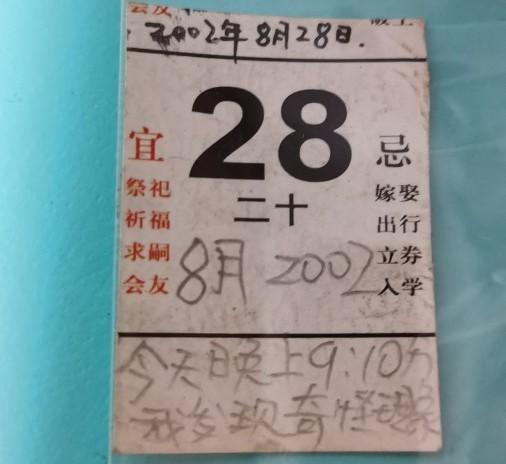 会友
破土
2002年8月28日.
28
二十
宜
祭祀
祈福
求嗣
会友
忌
嫁娶
出行
立券
入学
8月 2002
今天晚上9:10分
我发现奇怪现象